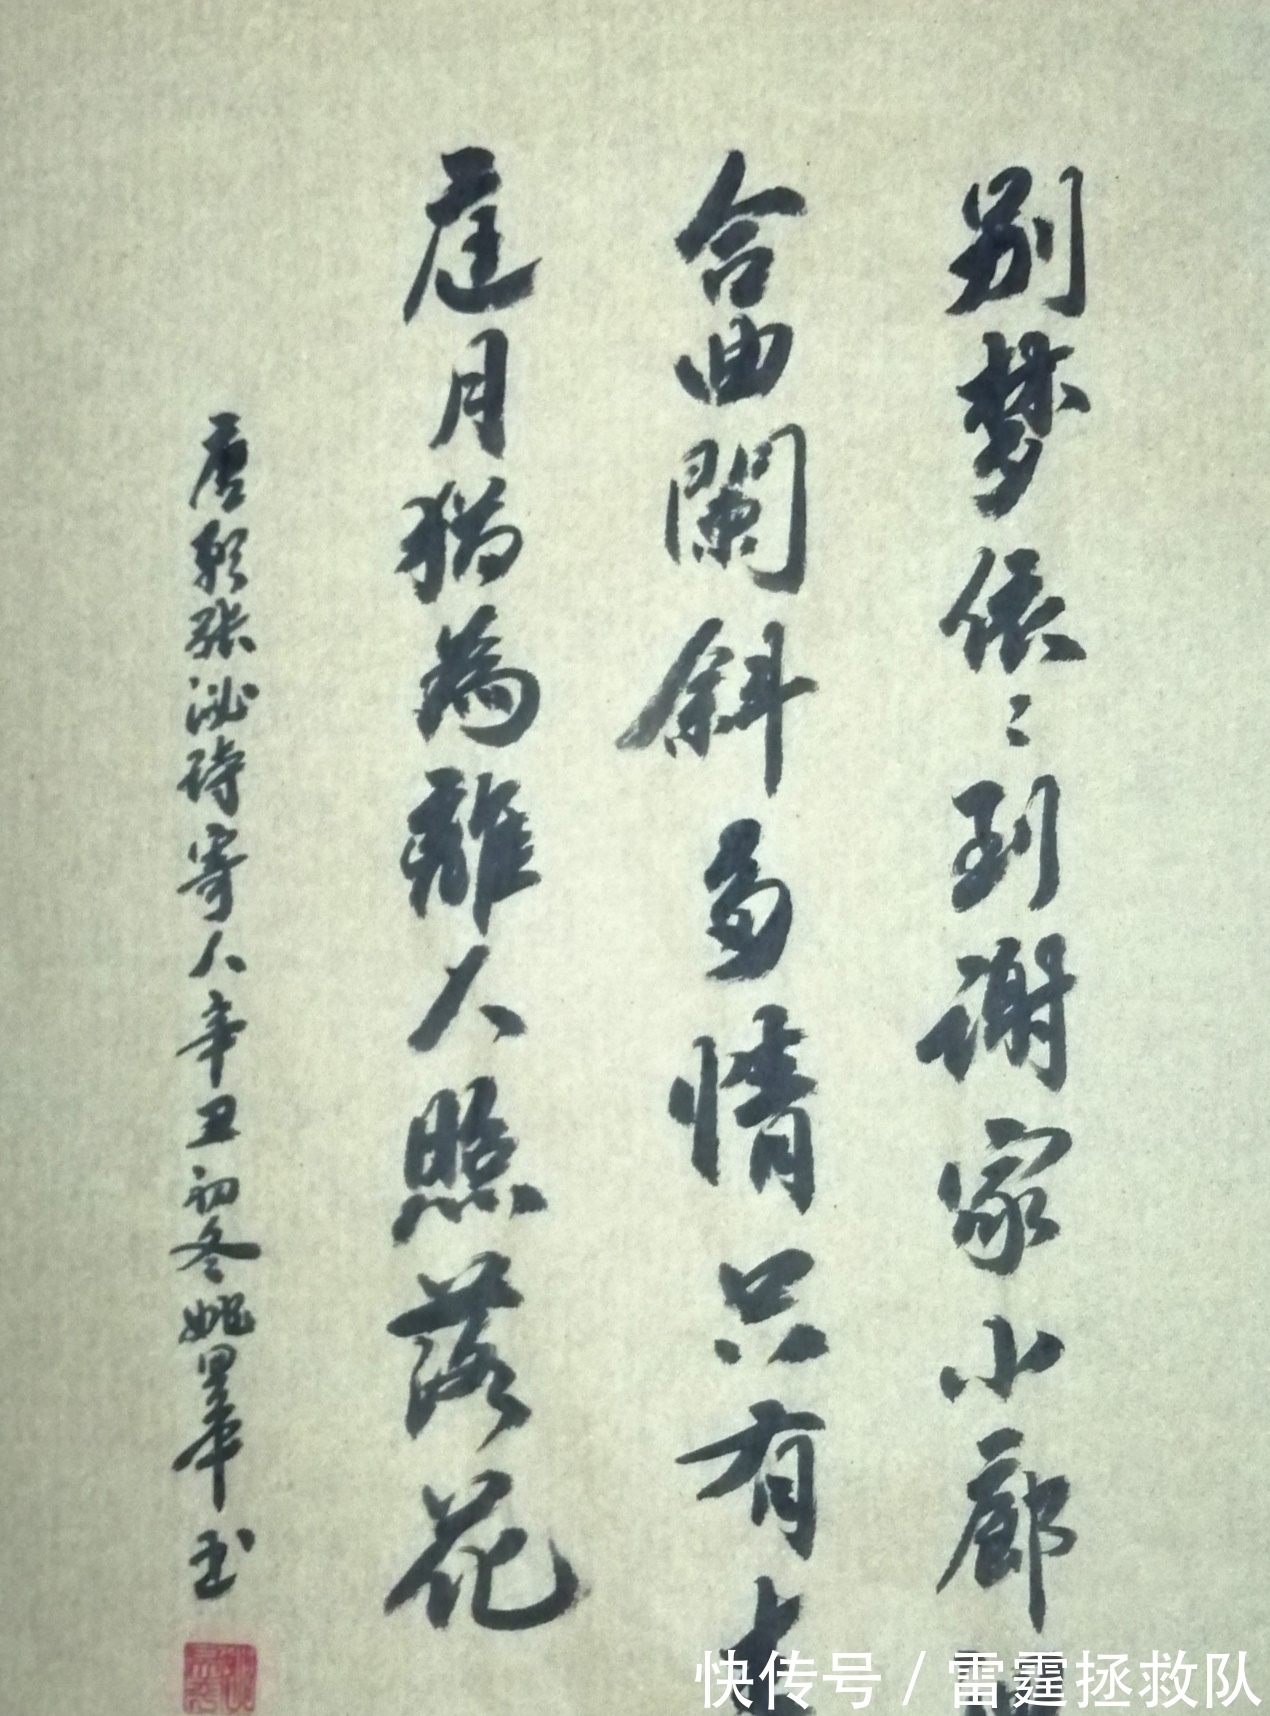 别梦依〻到谢家小廊
合曲闌斜多情只有
庭月犹為離人照落花
唐朝张泌诗寄人辛丑初冬姚墨军书
快传号 / 雷霆拯救队